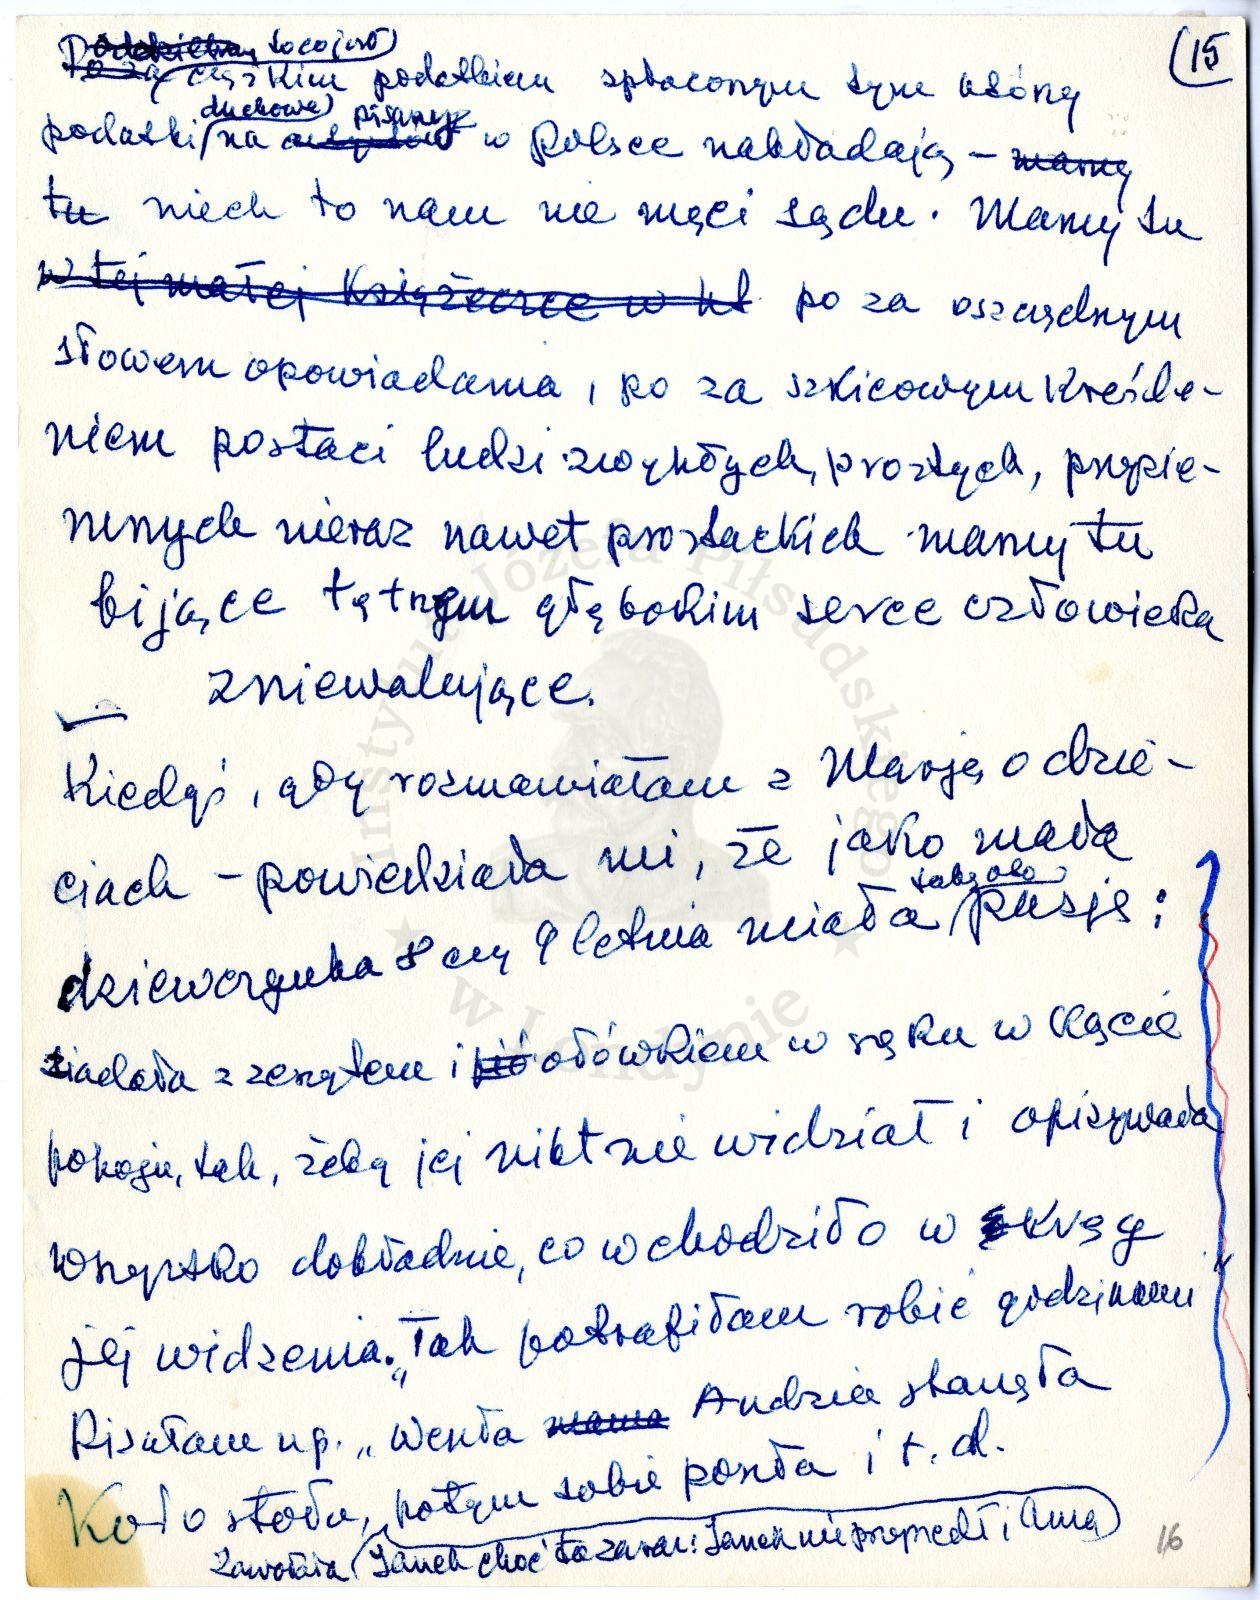 (15
socojest)
Po za ciężkim podatkiem spłaconym tym którzy
duchowe) pisarzy
podatki/na artystów w Polsce nakładają – mamy
tu niech to nam nie mąci sądu. Mamy tu
w tej małej książeczce w kt po za oszczędnym
słowem opowiadania, po za szkicowym kreśle-
niem postaci ludzi zwykłych, prostych,
nieraz nawet prostackich mamy tu
bijące tętnem głębokim serce człowieka
zniewalające.
Kiedyś, gdy rozmawiałam z Marją o dzie-
ciach – powiedziała mi, że jako mała
dziewczynka 8 czy 9 letnia miała taką oto pasję:
siadała z zeszytem i pió ołówkiem w ręku w kącie
pokoju, tak, żeby jej nikt nie widział i opisywała
wszystko dokładnie, co wchodziło w krąg
jej widzenia. „Tak potrafiłam robić godzinami"
Pisałam np. „Weszła mama Andzia stanęła
Koło stołu, potym sobie poszła i t. d.
zawołała (Janek choć tu zaraz: Janek nie przyszedł i Anna)
16
Instytut Józefa Piłsudskiego
w Londynie